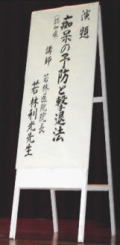 演題
痴呆の予防と撃退法
(認知症)
講師
若林医院院長
若林利光先生